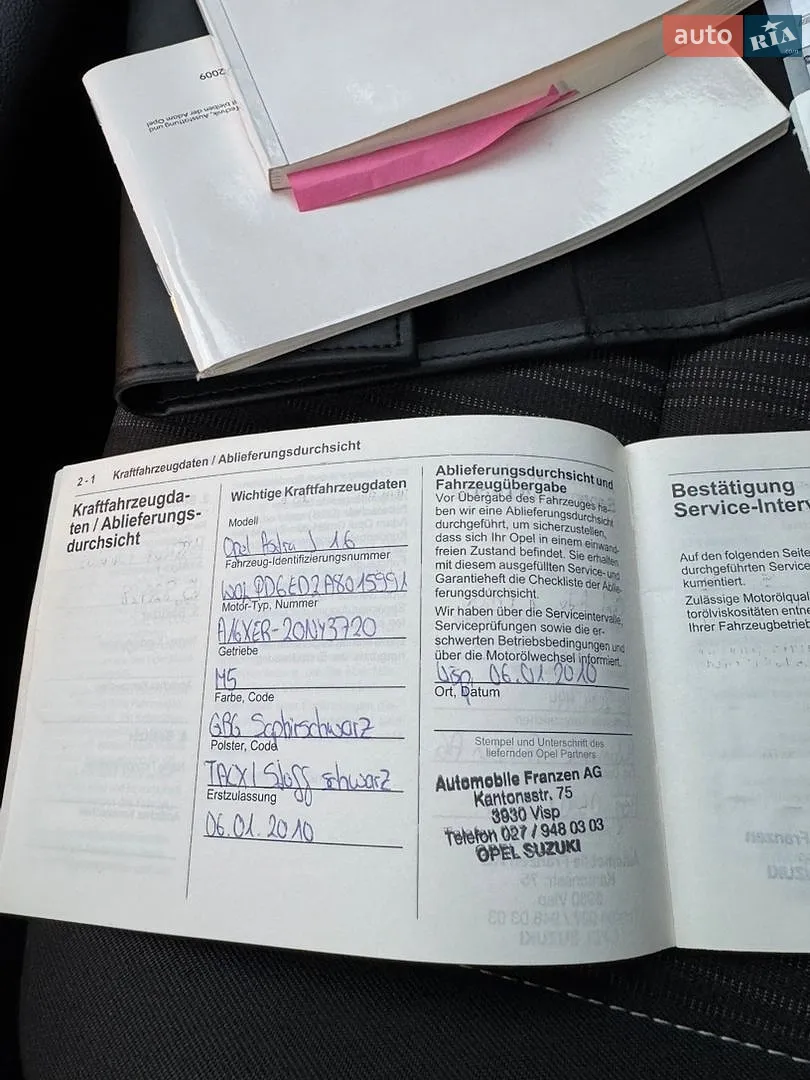 auto RIA
.com
2009
Technik, Ausstattung und
bleiben der Adam Opel
2 - 1 Kraftfahrzeugdaten / Ablieferungsdurchsicht
Kraftfahrzeugda-
ten / Ablieferungs-
durchsicht
Wichtige Kraftfahrzeugdaten
Modell
Opel Astra J 1.6
Fahrzeug-Identifizierungsnummer
Motor-Typ, Nummer
A16XER-20NY3720
Getriebe
M5
Farbe, Code
GBG Saphirschwarz
Polster, Code
TACX / Stoff schwarz
Erstzulassung
06.01.2010
Ablieferungsdurchsicht und
Fahrzeugübergabe
Vor Übergabe des Fahrzeuges ha-
ben wir eine Ablieferungsdurchsicht
durchgeführt, um sicherzustellen,
dass sich Ihr Opel in einem einwand-
freien Zustand befindet. Sie erhalten
mit diesem ausgefüllten Service- und
Garantieheft die Checkliste der Ablie-
ferungsdurchsicht.
Wir haben über die Serviceintervalle,
Serviceprüfungen sowie die er-
schwerten Betriebsbedingungen und
über die Motorölwechsel informiert.
Visp, 06.01.2010
Ort, Datum
Stempel und Unterschrift des
liefernden Opel Partners
Automobile Franzen AG
Kantonsstr. 75
3930 Visp
Telefon 027 / 948 03 03
OPEL SUZUKI
Bestätigung
Service-Interv
Auf den folgenden Seite
durchgeführten Service
kumentiert.
Zulässige Motorölqual
torölviskositäten entne
Ihrer Fahrzeugbetrieb